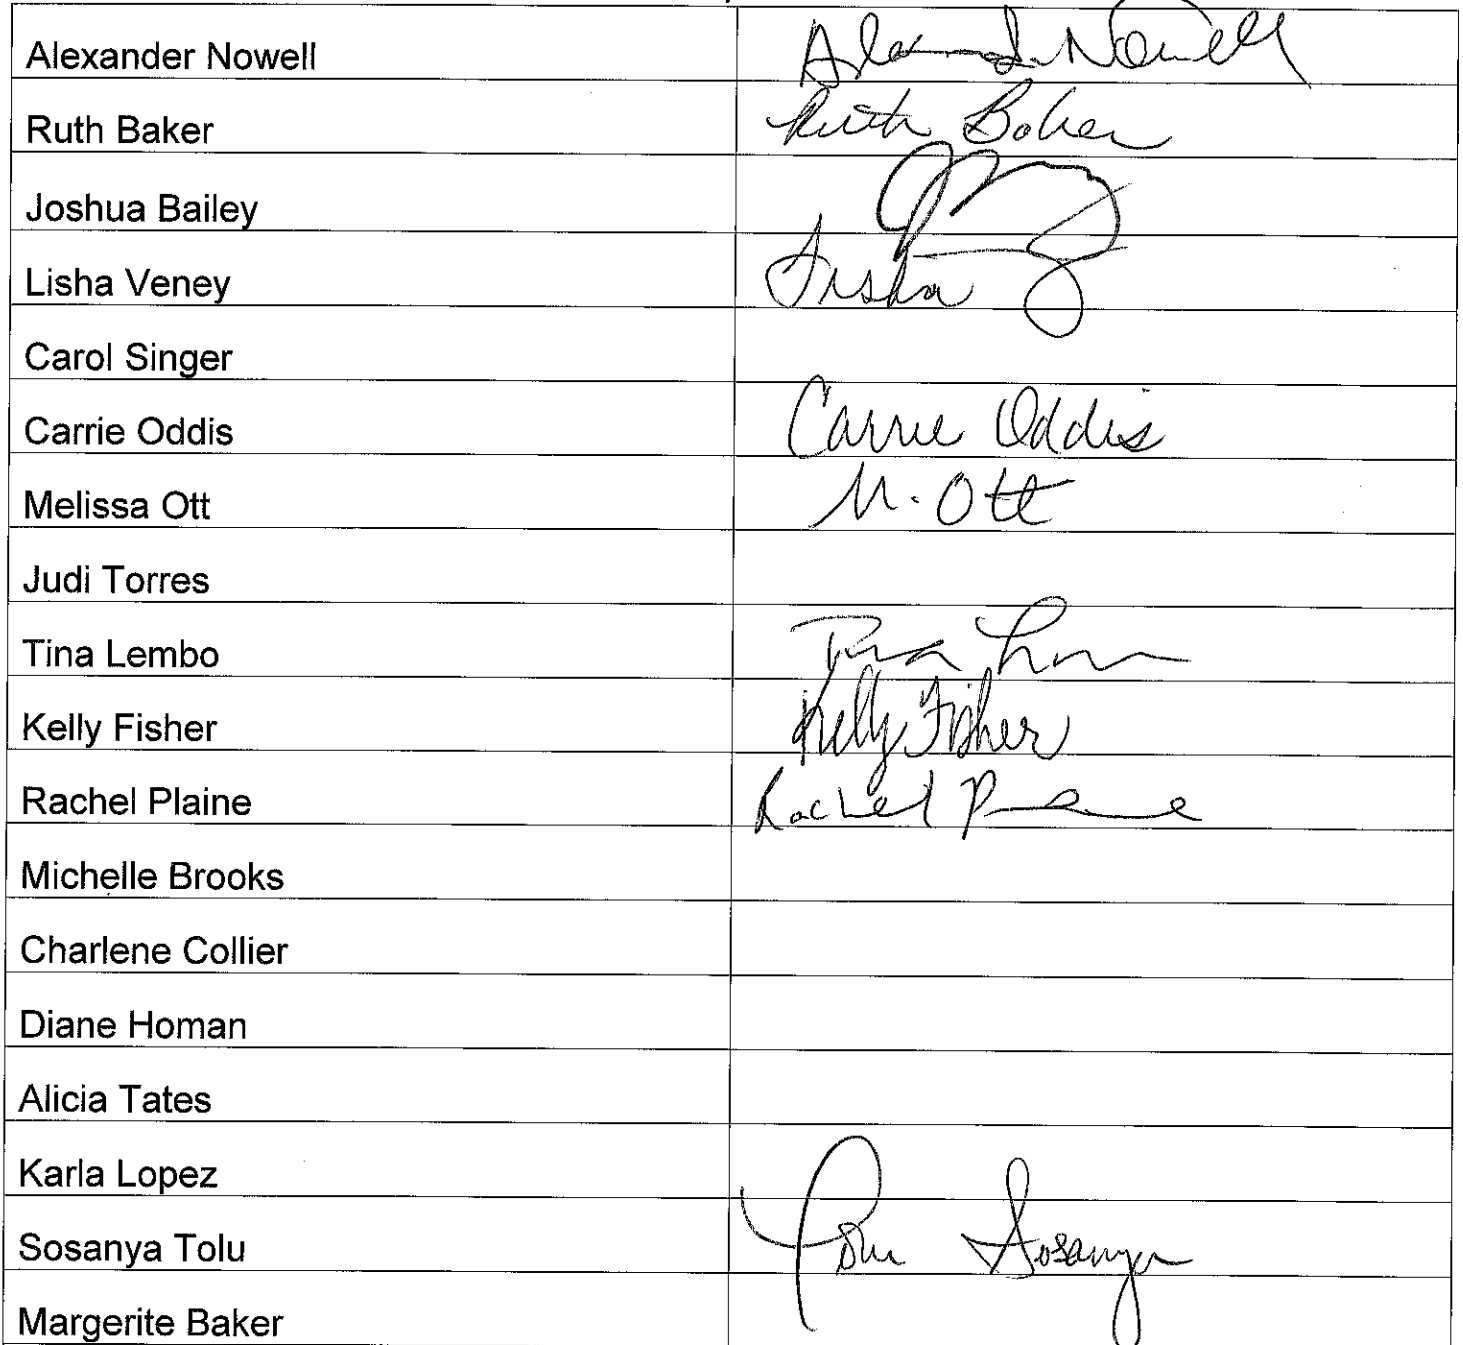 Alexander Nowell Alexand Nowell
Ruth Baker Ruth Baker
Joshua Bailey
Lisha Veney Lisha
Carol Singer
Carrie Oddis Carrie Oddis
Melissa Ott M. Ott
Judi Torres
Tina Lembo Tina
Kelly Fisher Kelly Fisher
Rachel Plaine Rachel
Michelle Brooks
Charlene Collier
Diane Homan
Alicia Tates
Karla Lopez
Sosanya Tolu Tolu Sosanya
Margerite Baker